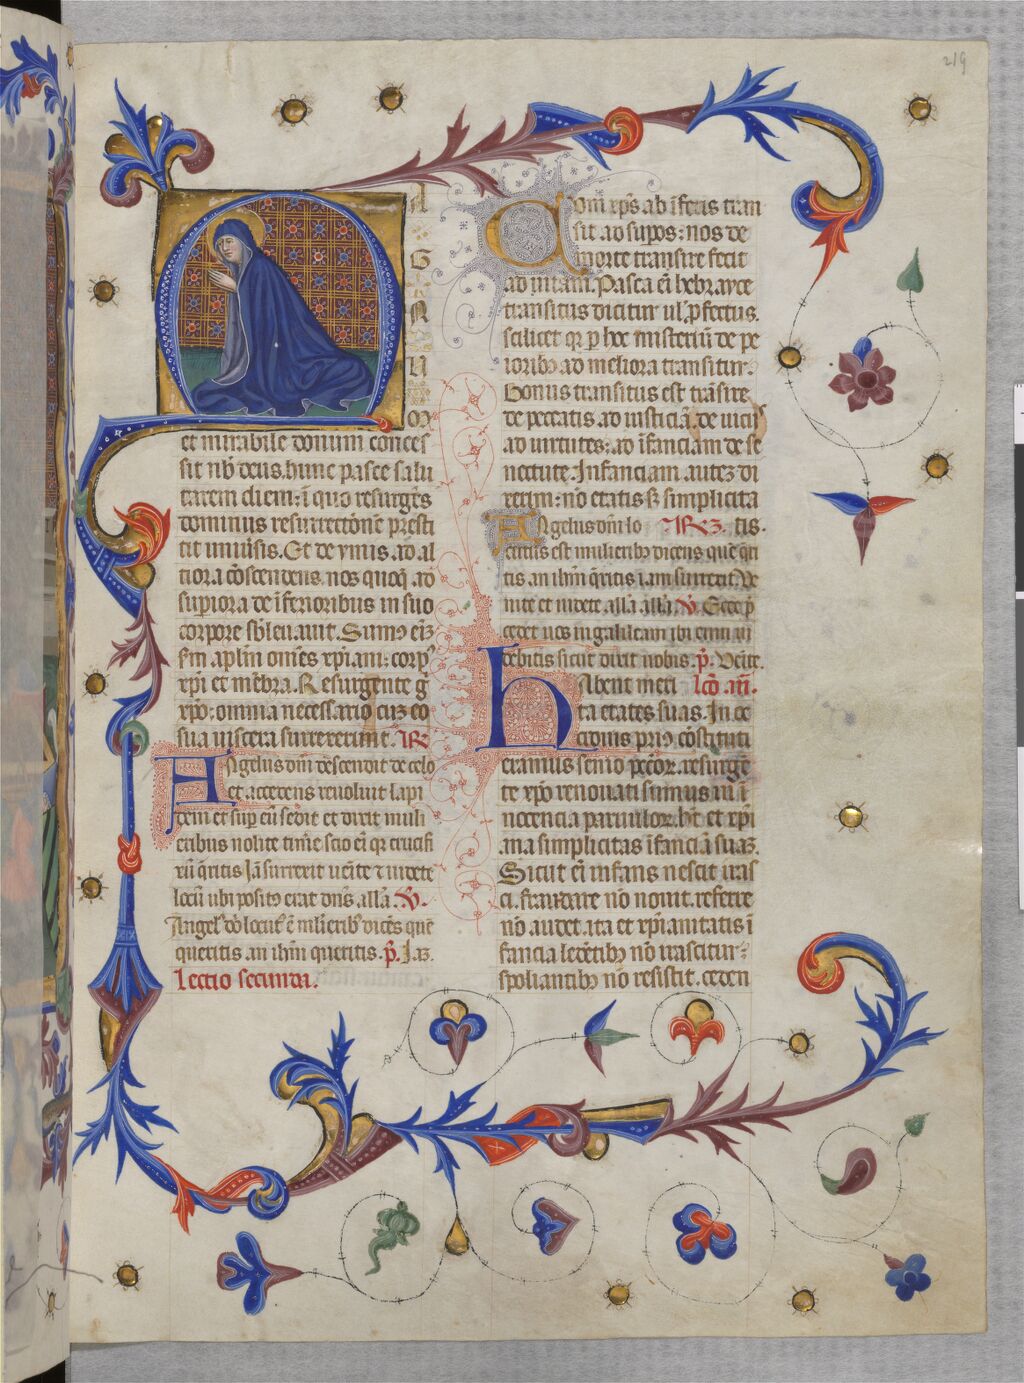 219
MAGNUM
et mirabile donum conces
sit nb̄ deus. hunc pasce salu
tarem diem: ī quo resurgēs
dominus resurrectōnē presti
tit univīsis. Et de ymis. ad al
tiora cōscendens. nos quoq̨ ad
suꝑiora de īferioribus in suo
corpore sb̄levavit. Sumꝰ eīz
sm̄ aplm̄ omēs xp̄iani: corpꝰ
xp̄i et mēbra. Resurgente g̊
xp̄o: omnia necessario cuz eo
sua viscera surrexerunt. R̄
Angelus dn̄i descendit de celo
et accedens revoluit lapi
dem et suꝑ eū sedit et dixit muli
eribus nolite timē scio eī q̨ crucifi
xū q̄ritis Iā surrexit ueīte ⁊ uidete
locū ubi positꝰ erat dn̄s. all̄a. V̄.
Angelꝰ dn̄i locutꝰ ē ml̄ieribꝰ dicēs quē
queritis. an ih̄m queritis. p̄. Iā.
Lectio secunda.
Dom xp̄s ab īferis tran
sit ad suꝑos: nos de
morte transire fecit
ad vitam. Pasca eī hebrayce
transitus dicitur vl̓ ꝓfectus.
scilicet q̨ ꝑ hoc misteriū de pe
ioribꝰ ad meliora transitur.
Bonus transitus est trāsire
de peccatis. ad iusticiā. de vicijs
ad virtutes: ad īfanciam de se
nectute. Infanciam. autez di
xerim: nō etatis sꝫ simplicita
Angelus dn̄i lo R̄ꝫ. tis.
cutus est mulieribꝰ dicens quē q̄ri
tis an ih̄m q̄ritis iam surrexit. Ve
nite et uidete all̄a all̄a. V̄. Ecce p̄
cedet vos in galileam ibi eum ui
debitis sicut dixit vobis. p̄. Venite.
Habent meri lc̄o. iii.
ta etates suas. In ce
teranus senio peccoꝝ. resurgē
te xp̄o renovati sumus in ī
nocencia parvuloꝝ. hꝫ et xp̄i
ana simplicitas īfanciā suaꝫ.
Sicut eī infans nescit iras
ci. fraudare nō novit. referre
nō audet. ita et xp̄ianitatis ī
fancia ledētibꝰ nō irascitur:
spoliantibꝰ nō resistit. ceden